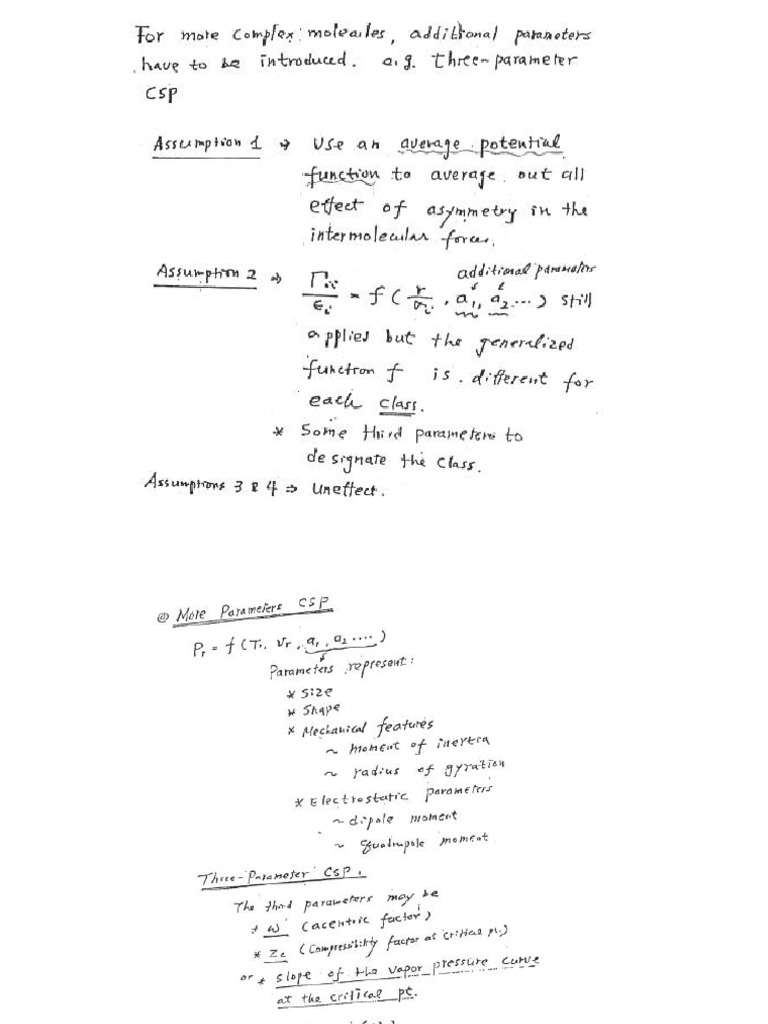 For more complex molecules, additional parameters
have to be introduced. e.g. three-parameter
CSP
Assumption 1 → Use an average potential
function to average out all
effect of asymmetry in the
intermolecular forces.
additional parameters
Assumption 2 ⇒ Γii/εi = f ( r/σi , a1, a2 ... ) still
applies but the generalized
function f is different for
each class.
* Some third parameters to
designate the class.
Assumptions 3 & 4 ⇒ Uneffect.
@ More Parameters CSP
Pr = f (Tr, Vr, a1, a2 ....)
Parameters represent:
* Size
* Shape
* Mechanical features
~ moment of inertia
~ radius of gyration
* Electrostatic parameters
~ dipole moment
~ quadrupole moment
Three-Parameter CSP.
The third parameters may be
* ω (acentric factor)
* Zc (compressibility factor at critical pt.)
or * slope of the vapor pressure curve
at the critical pt.